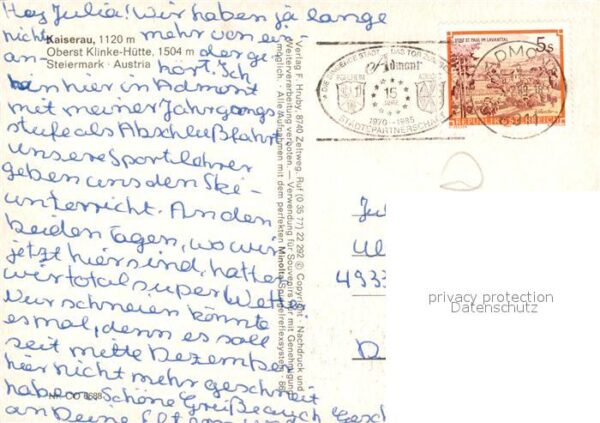 Hey Julia! Wir haben ja lange
nichts mehr von ein-
Kaiserau, 1120 m
ander ge-
Oberst Klinke-Hütte, 1504 m
hört. Ich
Steiermark · Austria
bin hier in Admont
mit meiner Jahrgangs
stufe als Abschlußfahrt
unsere Sportlehrer
geben uns den Ski-
unterricht. An den
beiden Tagen, wo wir
jetzt hier sind, hatten
wir total super Wetter
Nur schneien könnte
es mal, denn es soll
seit mitte Dezember
hier nicht mehr geschneit
haben. Schöne Grüße auch
an Deine Eltern und Gesch
Nr. CO 6688
Verlag F. Hruby, 8740 Zeltweg, Ruf (0 35 77) 22 292 © Copyright · Nachdruck und
Weiterverarbeitung verboten — Verwendung für Souvenirs nur mit Genehmigung
möglich. Alle Aufnahmen mit dem perfekten Minolta-Spiegelreflexsystem.
DAS TOR
Admont
15
JAHRE
1970 - 1985
STÄDTEPARTNERSCHAFT
ADMONT
STIFT ST. PAUL IM LAVANTTAL
5 S
REPUBLIK ÖSTERREICH
Jul
Ul
4933
D
privacy protection
Datenschutz